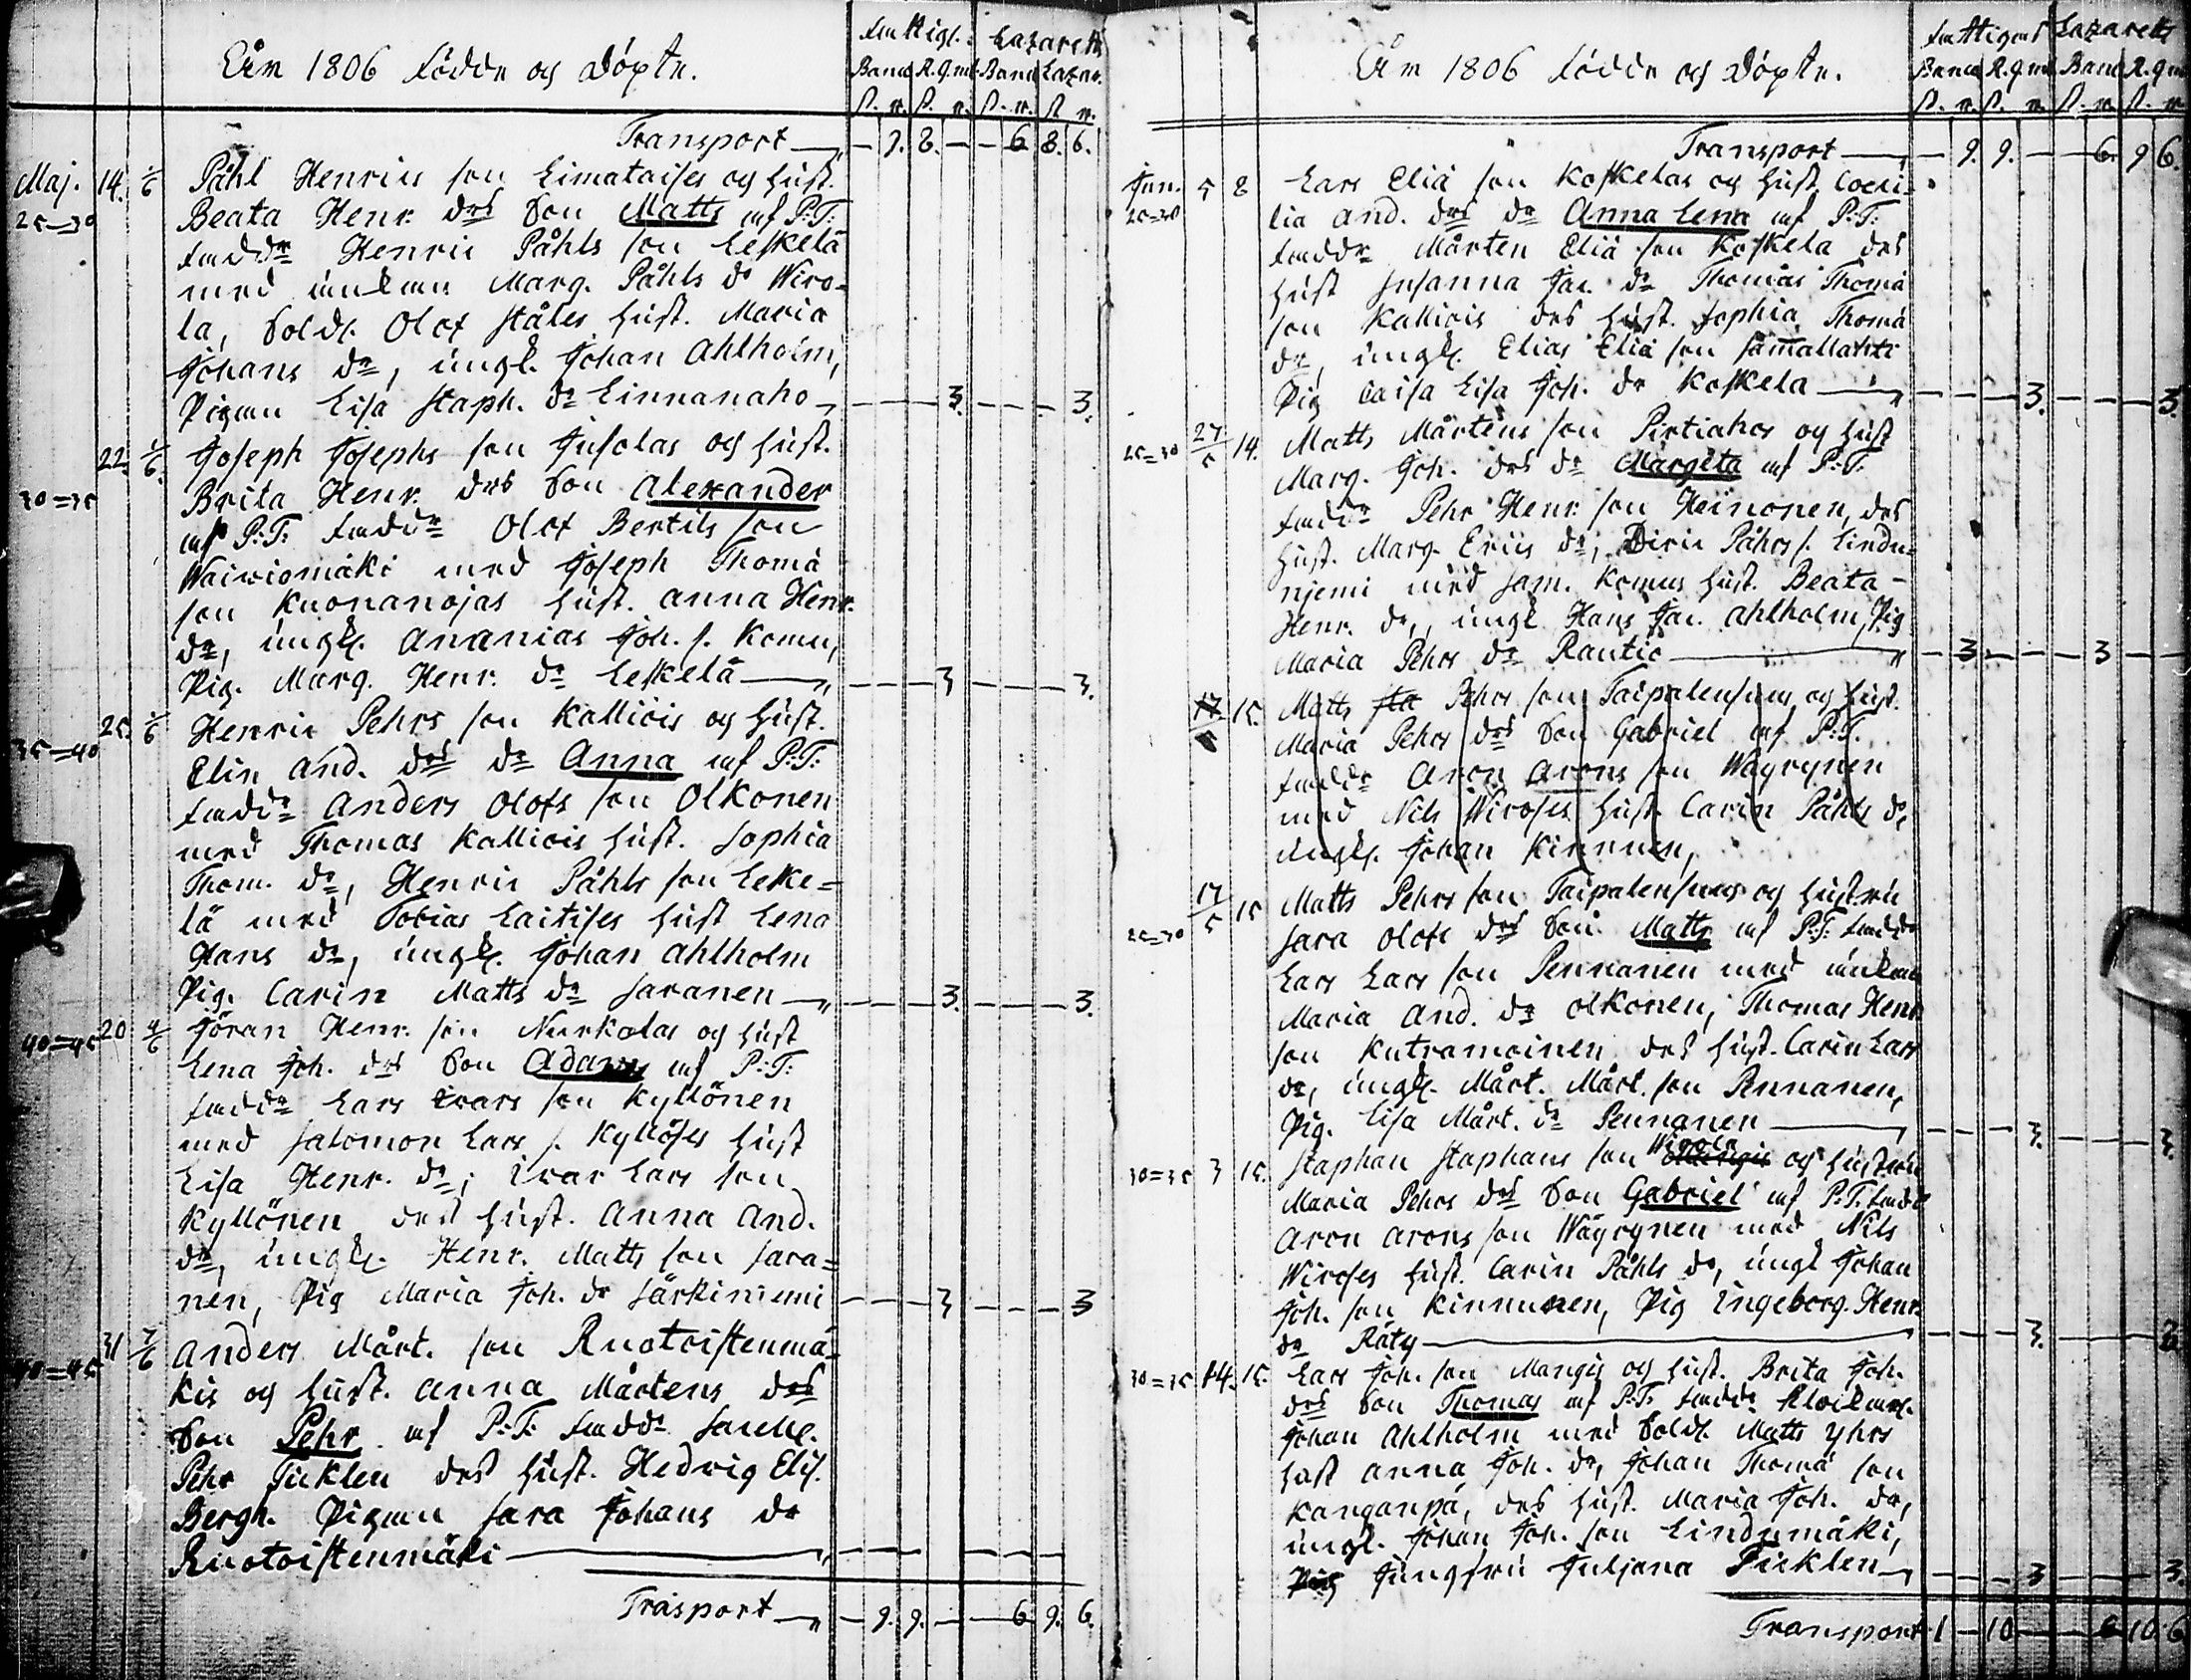 Åhr 1806 födde og döpte.
Fattigs. Lazarett
Banco R.gmt Banco Lazar.
ß. r. ß. r. ß. r. ß r.
Transport — 9. 8. — — 6 8. 6.
Maj. 14. 1/6 Påhl Henrics son Limataises og hust.
25=30 Beata Henr. drs son Matts af P:T:
faddr Henric Påhls son Leskelä
med änkan Marg. Påhls dr Wiro-
la, Sold. Olof Ståles hust. Maria
Johans dr, ungk. Johan Ahlholm,
Pigan Lisa Staph. dr Linnanaho — 3. — 3.
22. 1/6. Joseph Josephs son Jusolas og hust.
30=35 Brita Henr. drs son Alexander
af P:T: faddr Olof Bertils son
Waiwiomäki med Joseph Thomä
son Kuonanojas hust. Anna Henr.
dr, ungk. Ananias Joh. s. Komu,
Pig. Marg. Henr. dr Leskelä — 3 — 3.
25. 1/6 Henric Pehrs son Kalliois og hust.
35=40 Elin And. drs dr Anna af P:T:
faddr Anders Olofs son Olkonen
med Thomas Kalliois hust. Sophia
Thom. dr, Henric Påhls son Leke=
lä med Tobias Laitises hust Lena
Hans dr, ungk. Johan Ahlholm
Pig. Carin Matts dr Saranen — 3. — 3.
40=45 20 4/6 Jöran Henr. son Nurkalas og hust
Lena Joh. drs son Adam af P:T:
faddr Lars Ivars son Kyllönen
med Salomon Lars s. Kyllöses hust
Lisa Henr. dr; Ivar Lars son
Kyllönen des hust. Anna And.
dr, ungk. Henr. Matts son Sara=
nen, Pig Maria Joh. dr Särkiniemi — 3 — 3
31 7/6 Anders Mårt. son Ruotoistenmä-
40=45 kis og hust. Anna Mårtens drs
son Pehr af P:T: faddr
Pehr Ticklen des hust. Hedvig Elis.
Bergh. Pigan Sara Johans dr
Ruotoistenmäki —
Trasport — 9. 9. — 6 9. 6.
Åhr 1806 födde og döpte.
Fattigas Lazarett
Banco R.gmt Banco R.gmt
ß. r. ß. r. ß. r. ß. r.
Transport — 9. 9. — 6. 9 6.
Jun. 5 8 Lars Eliä son Koskelas og hust Coeci-
25=30 lia And. drs dr Anna Lena af P:T:
faddr Mårten Eliä son Koskela des
hust Susanna Jac. dr Thomas Thomä
son Kalliois des hust. Sophia Thomä
dr, ungk. Elias Eliä son Sämallahti
Pig Caisa Lisa Joh. dr Koskela — 3. — 3.
25=30 27/5 14. Matts Mårtens son Pirtiahos og hust
Marg. Joh. drs dr Margeta af P:T:
faddr Pehr Henr. son Heinonen, des
hust. Marg. Erics dr, Diric Påhrs s. Lindu-
njemi med Sam. Komus hust. Beata-
Henr. dr, ungk Hans Jac. Ahlholm, Pig
Maria Pehrs dr Rautio — 3. — 3 —
17 15. Matts Pehrs son Taipalensuus og hust.
Maria Pehrs drs son Gabriel af P:T.
faddr Aron Arons son Wäyrynen
med Nils Wiroses hust Carin Påhls dr
ungk. Johan Kinnunen,
17/5 15 Matts Pehrs son Taipalensuus og hustru
25=30 Sara Olofs drs son Matts af P:T: faddr
Lars Lars son Pennanen med änkan
Maria And. dr Olkonen, Thomas Henr
son Kutramoinen des hust. Carin Lars
dr, ungk. Mårt. Mårt. son Pennanen,
Pig. Lisa Mårt. dr Pennanen — 3. — 3.
30=35 3 15. Staphan Staphans son Wirola og hustru
Maria Pehrs drs son Gabriel af P.T. faddr
Aron Arons son Wäyrynen med Nils
Wiroses hust. Carin Påhls dr, ungk Johan
Joh. son Kinnunen, Pig Ingeborg Henr.
dr Räty — 3. — 3.
30=35 14. 15. Lars Joh. son Mangis og hust. Brita Joh.
drs son Thomas af P:T: faddr Klockaren
Johan Ahlholm med Sold. Matts Yhrs
hust Anna Joh. dr, Johan Thomä son
Kanganpä, des hust. Maria Joh. dr,
ungk. Johan Joh. son Lindumäki,
Jungfru Juljana Ticklen — 3 — 3.
Transport 1 — 10 — 6 10. 6